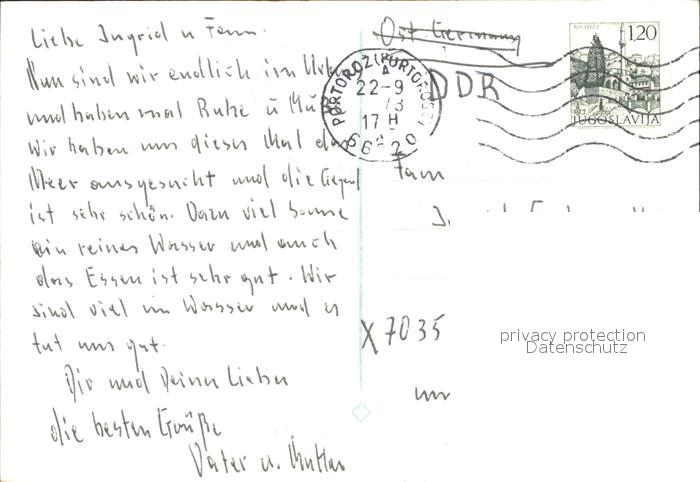 Liebe Ingrid u Fam.
Nun sind wir endlich im
und haben mal Ruhe u
Wir haben uns dieses Mal das
Meer ausgesucht und die Gegend
ist sehr schön. Dazu viel Sonne
ein reines Wasser und auch
das Essen ist sehr gut. Wir
sind viel im Wasser und es
tut uns gut.
Dir und Deinen Lieben
die besten Grüße
Vater u. Mutter
Ost Germany
DDR
PORTOROŽ (PORTOROSE)
A
22-9
73
17 H
66320
POČITELJ
1,20
JUGOSLAVIJA
Fam
X 7035
privacy protection
Datenschutz